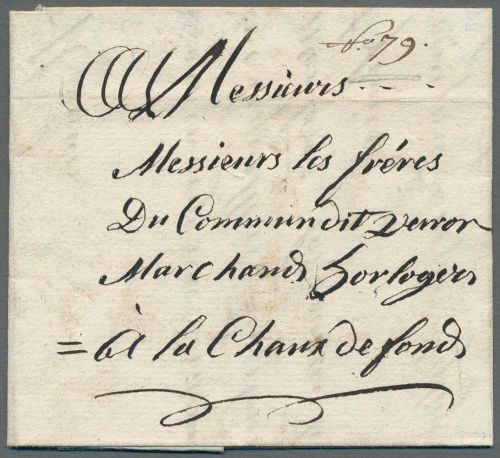 No 79.
A Messieurs
Messieurs les fréres
Du Commun dit Verron
Marchands horlogers
= à la Chaux de fonds